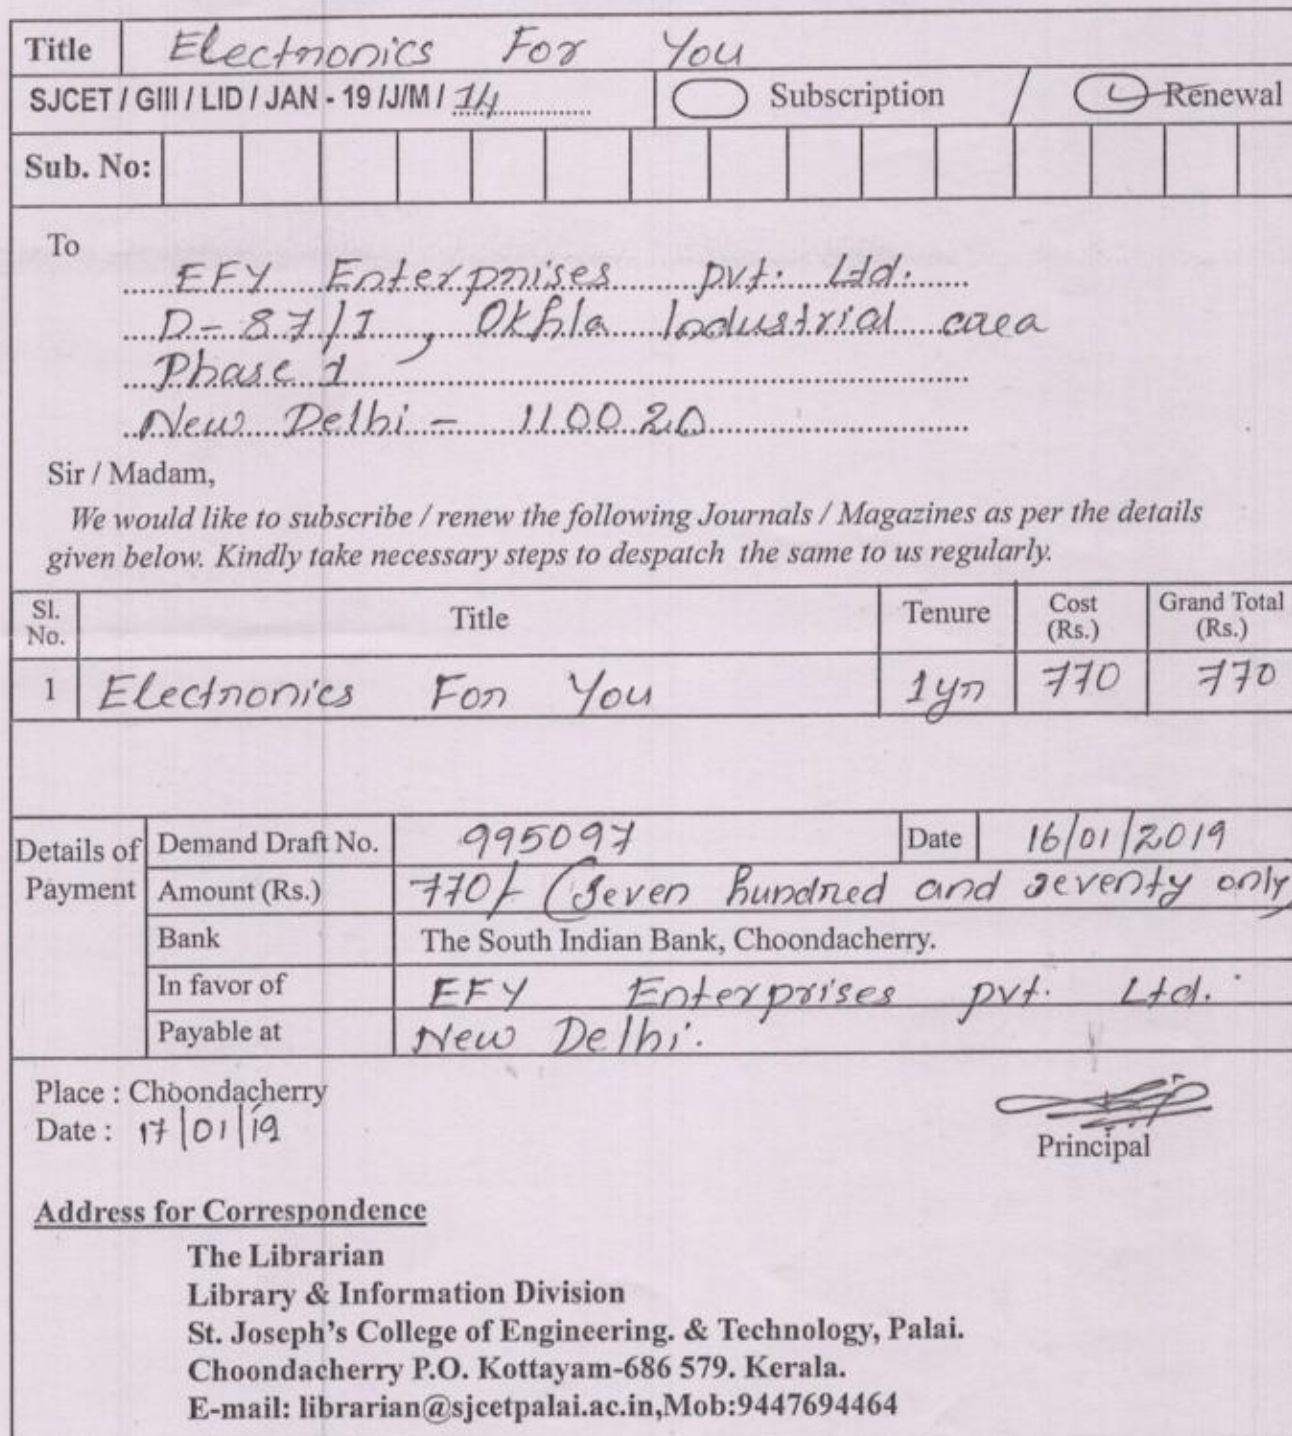 Title Electronics For You
SJCET / GIII / LID / JAN - 19 /J/M / 14 Subscription / Renewal
Sub. No:
To
EFY Enterprises pvt. Ltd.
D-87/1, Okhla Industrial area
Phase 1
New Delhi - 110020
Sir / Madam,
We would like to subscribe / renew the following Journals / Magazines as per the details
given below. Kindly take necessary steps to despatch the same to us regularly.
Sl. No. Title Tenure Cost (Rs.) Grand Total (Rs.)
1 Electronics For You 1yr 770 770
Details of Payment
Demand Draft No. 995097 Date 16/01/2019
Amount (Rs.) 770/- (Seven hundred and seventy only)
Bank The South Indian Bank, Choondacherry.
In favor of EFY Enterprises pvt. Ltd.
Payable at New Delhi.
Place : Choondacherry
Date : 17/01/19
Principal
Address for Correspondence
The Librarian
Library & Information Division
St. Joseph's College of Engineering. & Technology, Palai.
Choondacherry P.O. Kottayam-686 579. Kerala.
E-mail: librarian@sjcetpalai.ac.in,Mob:9447694464